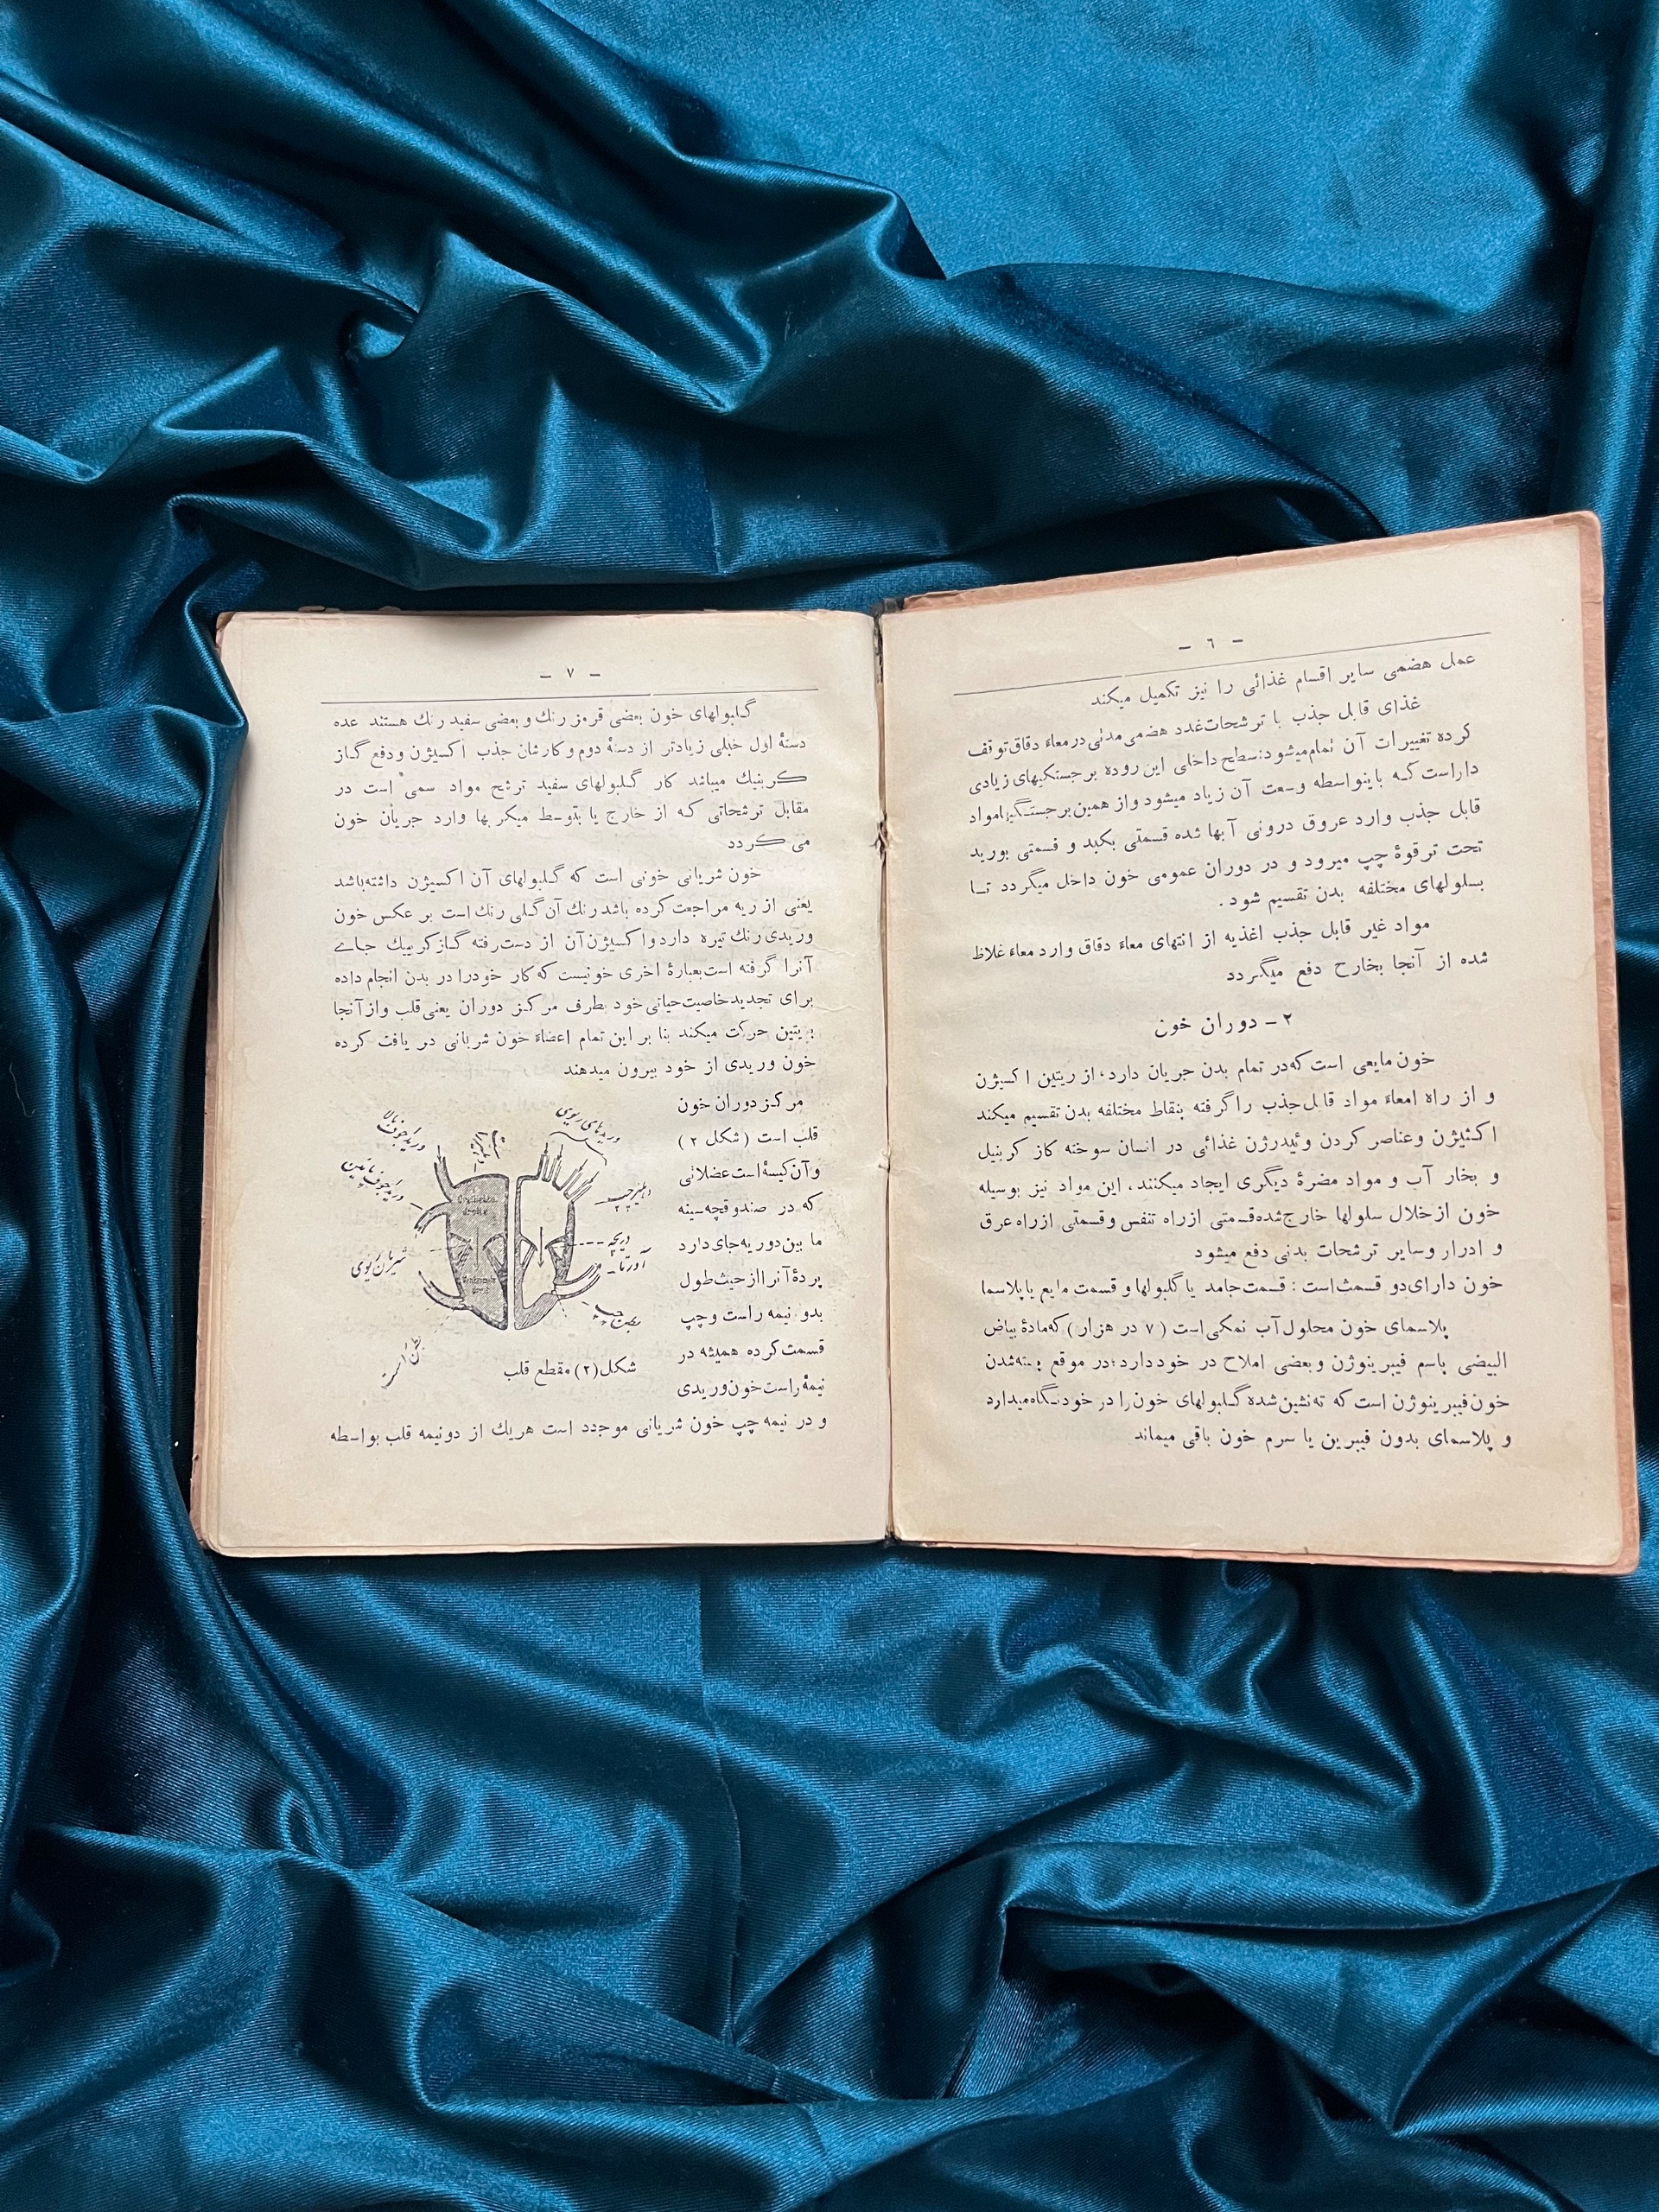 - ٦ -
عمل هضمی سایر اقسام غذائی را نیز تکمیل میکند
غذای قابل جذب با ترشحات غدد هضمی مدتی در معاء دقاق توقف
کرده تغییرات آن تمام میشود؛ سطح داخلی این روده برجستگیهای زیادی
داراست که باینواسطه وسعت آن زیاد میشود و از همین برجستگیها مواد
قابل جذب وارد عروق درونی آنها شده قسمتی بکبد و قسمتی بورید
تحت ترقوهٔ چپ میرود و در دوران عمومی خون داخل میگردد تا
بسلولهای مختلفه بدن تقسیم شود .
مواد غیر قابل جذب اغذیه از انتهای معاء دقاق وارد معاء غلاظ
شده از آنجا بخارج دفع میگردد
۲ - دوران خون
خون مایعی است که در تمام بدن جریان دارد، از ریتین اکسیژن
و از راه امعاء مواد قابل جذب را گرفته بنقاط مختلفه بدن تقسیم میکند
اکثیژن و عناصر کردن وئیدرژن غذائی در انسان سوخته کاز کربنیل
و بخار آب و مواد مضرهٔ دیگری ایجاد میکنند، این مواد نیز بوسیله
خون از خلال سلولها خارج شده قسمتی از راه تنفس و قسمتی از راه عرق
و ادرار و سایر ترشحات بدنی دفع میشود
خون دارای دو قسمت است : قسمت جامد یا گلبولها و قسمت مایع یا پلاسما
پلاسمای خون محلول آب نمکی است ( ۷ در هزار ) که مادهٔ بیاض
البیضی باسم فیبرینوژن و بعضی املاح در خود دارد؛ در موقع بسته شدن
خون فیبرینوژن است که ته نشین شده گلبولهای خون را در خود نگاه میدارد
و پلاسمای بدون فیبرین یا سرم خون باقی میماند
- ۷ -
گلبولهای خون بعضی قرمز رنك و بعضی سفید رنك هستند عده
دستهٔ اول خیلی زیادتر از دستهٔ دوم و کارشان جذب اکسیژن و دفع گاز
کربنیك میباشد کار گلبولهای سفید ترشح مواد سمی است در
مقابل ترشحاتی که از خارج یا بتوسط میکربها وارد جریان خون
می گردد
خون شریانی خونی است که گلبولهای آن اکسیژن داشته باشد
یعنی از ریه مراجعت کرده باشد رنك آن گلی رنك است بر عکس خون
وریدی رنك تیره دارد و اکسیژن آن از دست رفته گاز کربنیك جای
آنرا گرفته است بعبارة اخری خونیست که کار خود را در بدن انجام داده
برای تجدید خاصیت حیاتی خود بطرف مرکز دوران یعنی قلب و از آنجا
بریتین حرکت میکند بنا بر این تمام اعضاء خون شریانی دریافت کرده
خون وریدی از خود بیرون میدهند
مرکز دوران خون
قلب است ( شکل ۲ )
و آن کیسهٔ است عضلانی
که در صندوقچه سینه
ما بین دو ریه جای دارد
پردهٔ آنرا از حیث طول
بدو نیمه راست و چپ
قسمت کرده همیشه در
نیمهٔ راست خون وریدی
و در نیمه چپ خون شریانی موجدد است هریك از دو نیمه قلب بواسطه
وریدهای ریوی
ورید اجوف بالا
دهلیز چپ
دریچه
آورتا
شریان ریوی
بطن چپ
بطن راست
شکل (۲) مقطع قلب